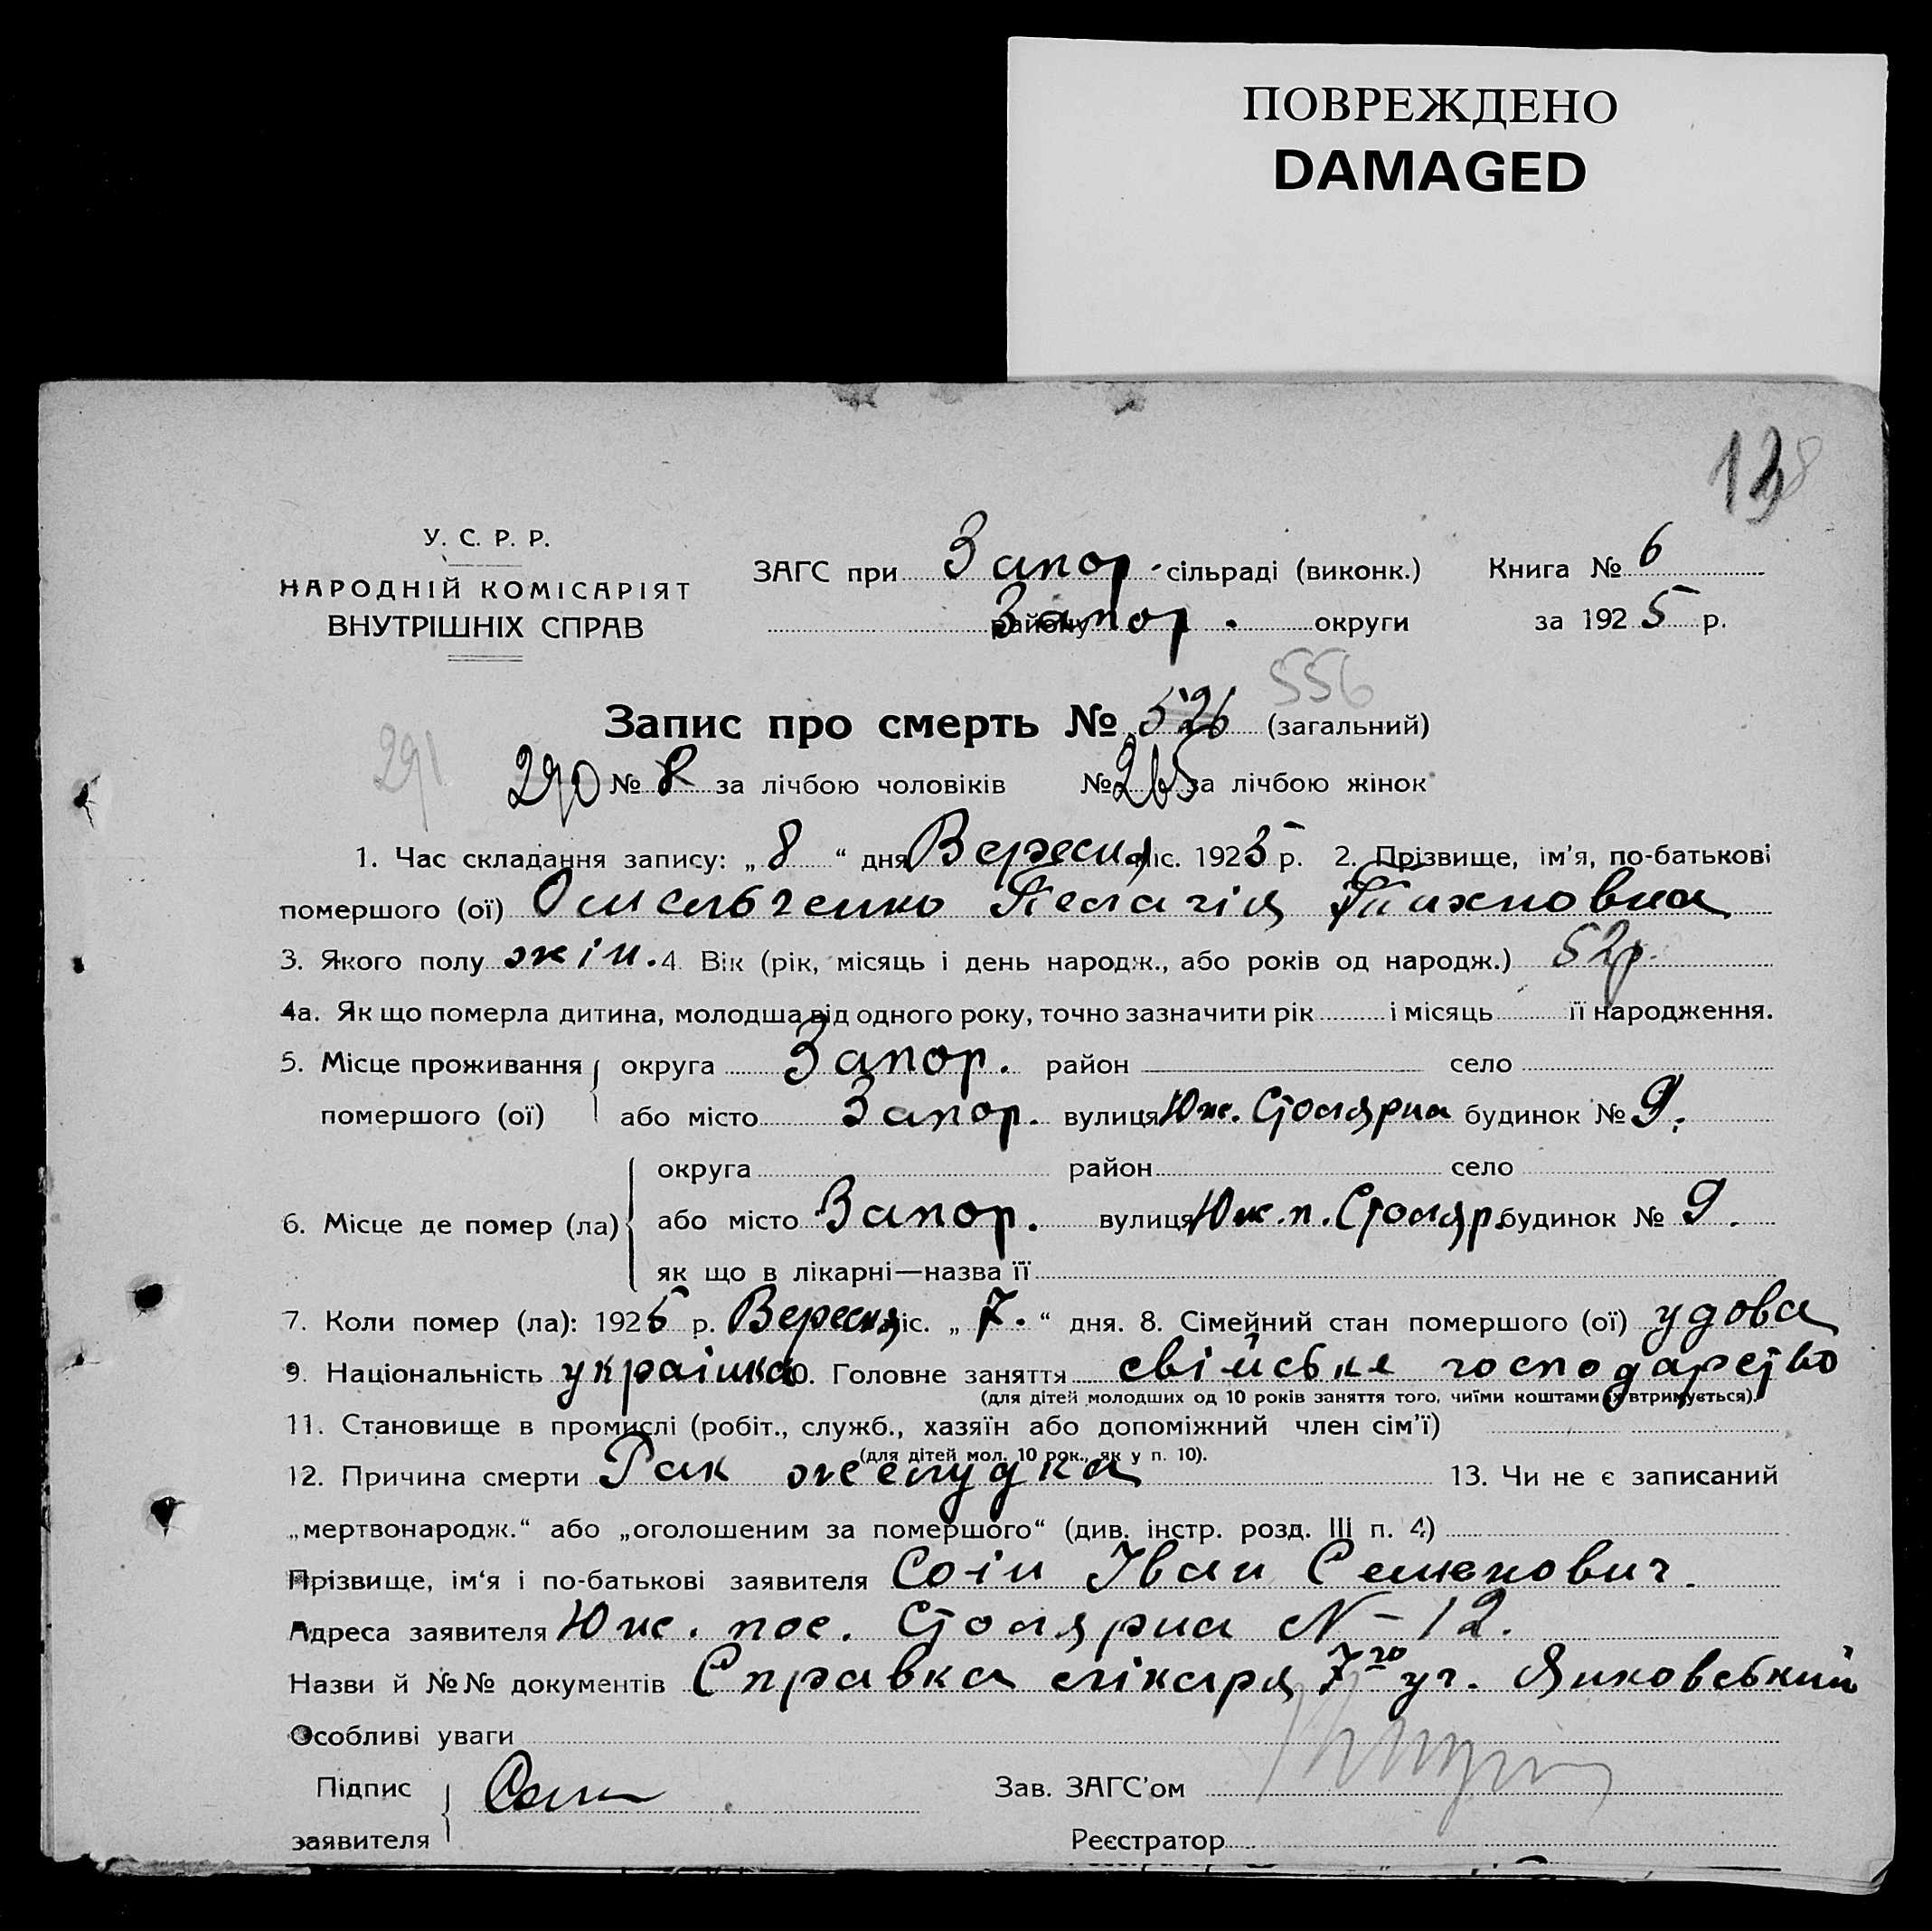 ПОВРЕЖДЕНО
DAMAGED
138
У. С. Р. Р.
НАРОДНІЙ КОМІСАРІЯТ
ВНУТРІШНІХ СПРАВ
ЗАГС при Запор. сільраді (виконк.) Книга № 6
району Запор. округи за 1925 р.
556
Запис про смерть № 526 (загальний)
291 290 № 8 за лічбою чоловіків № 265 за лічбою жінок
1. Час складання запису: „ 8 “ дня Вересня міс. 1925 р. 2. Прізвище, ім’я, по-батькові
помершого (ої) Омельченко Пелагія Тихновна
3. Якого полу жін. 4. Вік (рік, місяць і день народж., або років од народж.) 52р.
4а. Як що померла дитина, молодша від одного року, точно зазначити рік і місяць її народження.
5. Місце проживання округа Запор. район село
помершого (ої) або місто Запор. вулиця Юж. Столярна будинок № 9.
округа район село
6. Місце де помер (ла) або місто Запор. вулиця Юж. п. Столяр. будинок № 9.
як що в лікарні—назва її
7. Коли помер (ла): 1925 р. Вересня міс. „ 7. “ дня. 8. Сімейний стан помершого (ої) удова
9. Національність українка 10. Головне заняття свійське господарство
(для дітей молодших од 10 років заняття того, чиїми коштами їх втримується).
11. Становище в промислі (робіт., служб., хазяїн або допоміжний член сім’ї)
(для дітей мол. 10 рок., як у п. 10).
12. Причина смерти Рак желудка 13. Чи не є записаний
„мертвонародж.“ або „оголошеним за помершого“ (див. інстр. розд. III п. 4)
Прізвище, ім‘я і по-батькові заявителя Соін Іван Семенович.
Адреса заявителя Юж. пос. Столярна N – 12.
Назви й №№ документів Справка лікаря 7го уч. Янковський
Особливі уваги
Підпис Соин Зав. ЗАГС’ом
заявителя Реєстратор